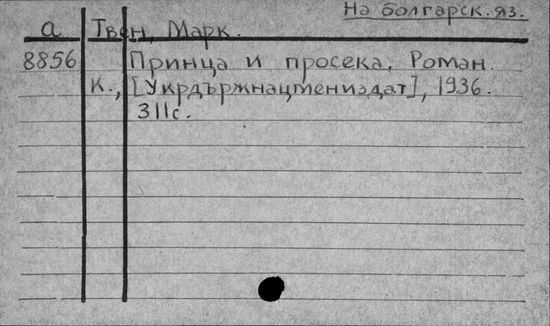 На болгарск. яз.
а Твен, Марк.
8856 Принца и просека. Роман.
К., [Укрдържнацмениздат], 1936.
311с.